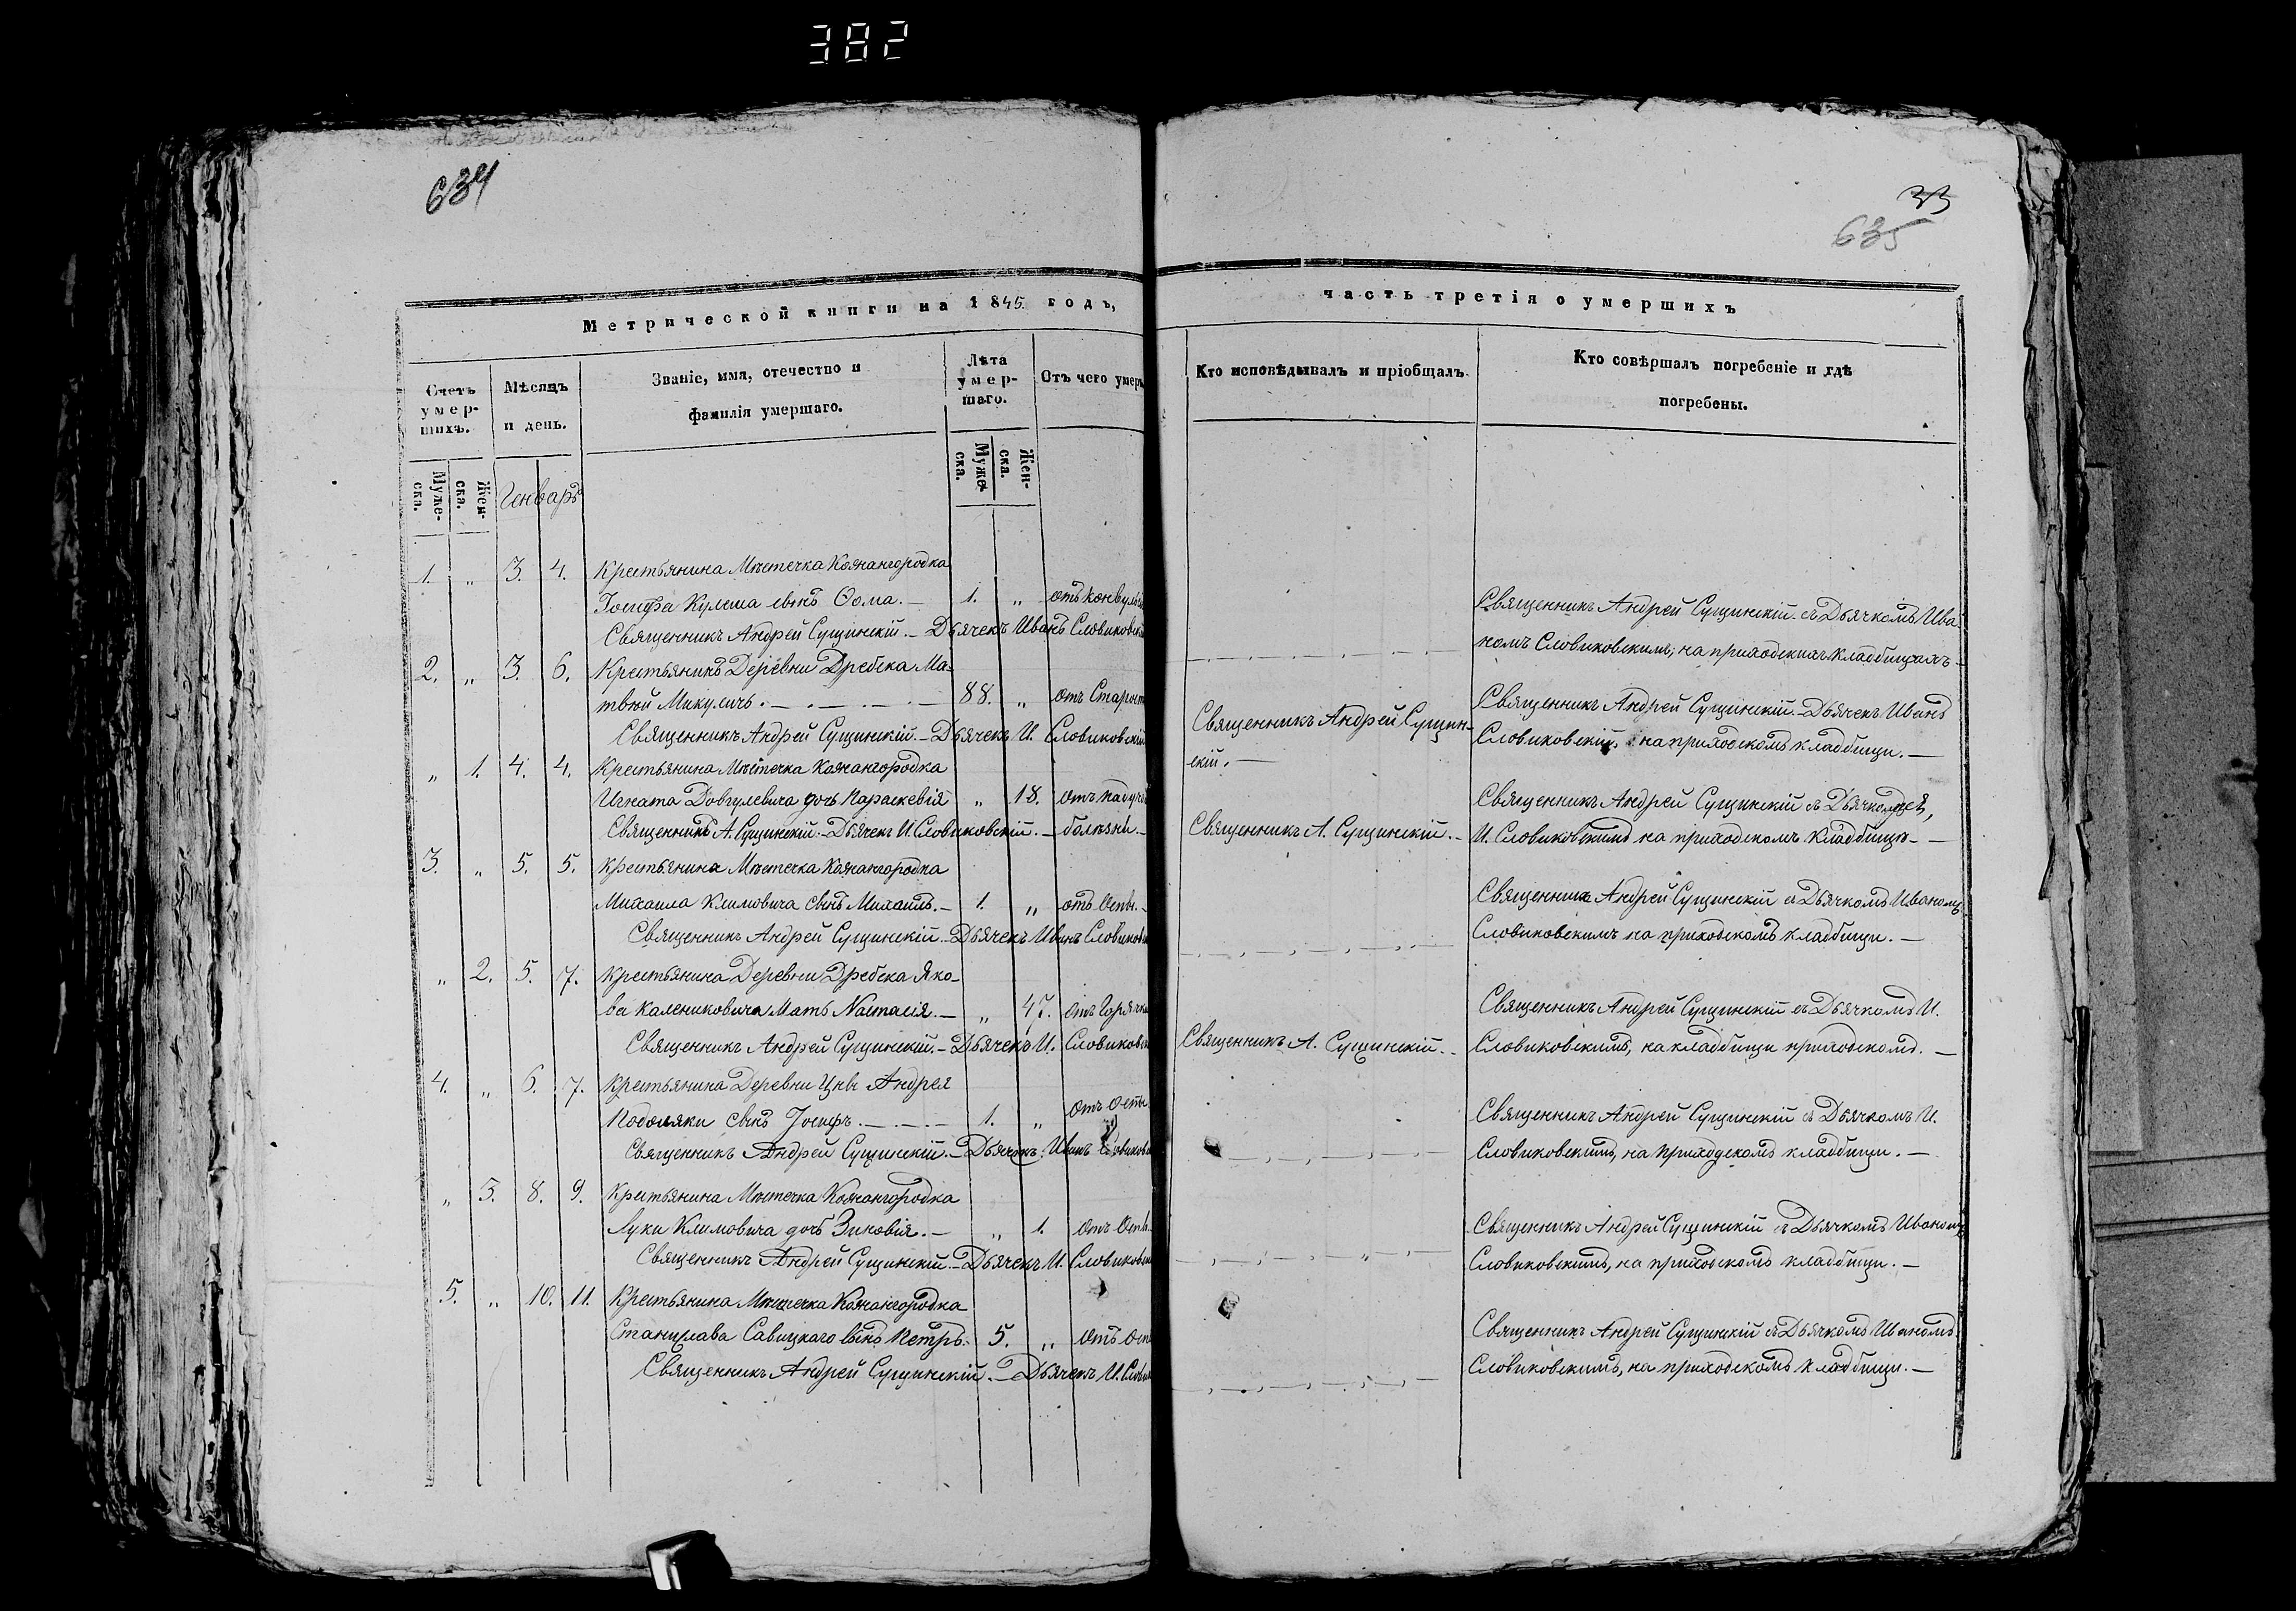 382
634
Метрической книги на 1845. годъ,
Счетъ умер-шихъ.
Мѣсяцъ и день.
Званіе, имя, отечество и
фамилія умершаго.
Лѣта умер-шаго.
Отъ чего умеръ
Муже-ска.
Жен-ска.
Генварь
Муже-ска.
Жен-ска.
1. „ 3. 4. Крестьянина Мѣстечка Кожангородка
Іосифа Кульша сынъ Ѳома. — 1. „ отъ конвульсіи
Священникъ Андрей Сущинскій. — Дьячекъ Иванъ Словиковскій
2. „ 3. 6. Крестьянинъ Деревни Дребска Ма-
твѣй Микуличъ. — 88. „ отъ Старости
Священникъ Андрей Сущинскій. — Дьячекъ И. Словиковскій
„ 1. 4. 4. Крестьянина Мѣстечка Кожангородка
Игната Довгулевича дочь Параскевія „ 18. отъ падучей
Священникъ А. Сущинскій. — Дьячекъ И. Словиковскій. — болѣзни. —
3. „ 5. 5. Крестьянина Мѣстечка Кожангородка
Михаила Климовича сынъ Михаилъ. — 1. „ отъ Оспы. —
Священникъ Андрей Сущинскій. — Дьячекъ Иванъ Словиковскій
„ 2. 5. 7. Крестьянина Деревни Дребска Яко-
ва Калениковича Мать Настасія. — „ 47. отъ Горячки
Священникъ Андрей Сущинскій. — Дьячекъ И. Словиковскій
4. „ 6. 7. Крестьянина Деревни Цны Андрея
Подоляки сынъ Іосифъ. — 1. „ отъ Оспы
Священникъ Андрей Сущинскій. — Дьячекъ Иванъ Словиковскій
„ 3. 8. 9. Крестьянина Мѣстечка Кожангородка
Луки Климовича дочь Зиновія. — „ 1. отъ Оспы
Священникъ Андрей Сущинскій. — Дьячекъ И. Словиковскій
5. „ 10. 11. Крестьянина Мѣстечка Кожангородка
Станислава Савицкаго сынъ Петръ. 5. „ отъ Осп
Священникъ Андрей Сущинскій. — Дьячекъ И. Слови
33
635
часть третія о умершихъ
Кто исповѣдывалъ и пріобщалъ.
Кто совѣршалъ погребеніе и гдѣ
погребены.
Священникъ Андрей Сущинскій съ Дьячкомъ Ива-
номъ Словиковскимъ, на приходскихъ кладбищахъ —
Священникъ Андрей Сущин-
скій. —
Священникъ Андрей Сущинскій. — Дьячекъ Иванъ
Словиковскій, на приходскомъ кладбищи. —
Священникъ А. Сущинскій. —
Священникъ Андрей Сущинскій съ Дьячкомъ
И. Словиковскимъ на приходскомъ кладбищи — —
Священникъ Андрей Сущинскій съ Дьячкомъ Иваномъ
Словиковскимъ на приходскомъ кладбищи. —
Священникъ А. Сущинскій. —
Священникъ Андрей Сущинскій съ Дьячкомъ И.
Словиковскимъ, на кладбищи приходскомъ. —
Священникъ Андрей Сущинскій съ Дьячкомъ И.
Словиковскимъ, на приходскомъ кладбищи. —
Священникъ Андрей Сущинскій съ Дьячкомъ Иваномъ
Словиковскимъ, на приходскомъ кладбищи. —
Священникъ Андрей Сущинскій съ Дьячкомъ Иваномъ
Словиковскимъ, на приходскомъ кладбищи. —